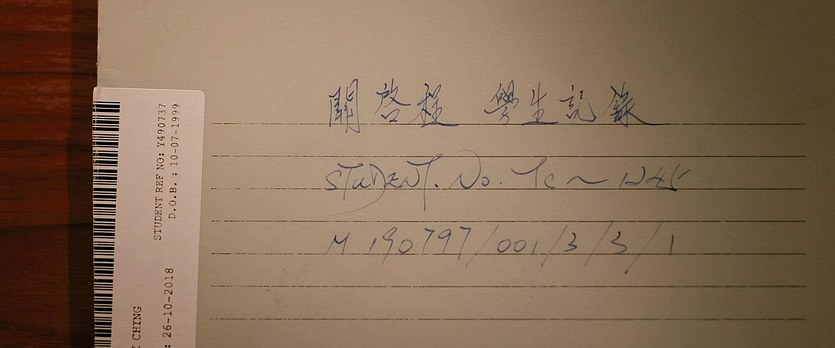 聞啓程 學生記錄
STUDENT. No. TC ~ 1245
M 190797/001/3/3/1
STUDENT REF NO: Y490737
D.O.B. : 10-07-1999
: 26-10-2018
CHING